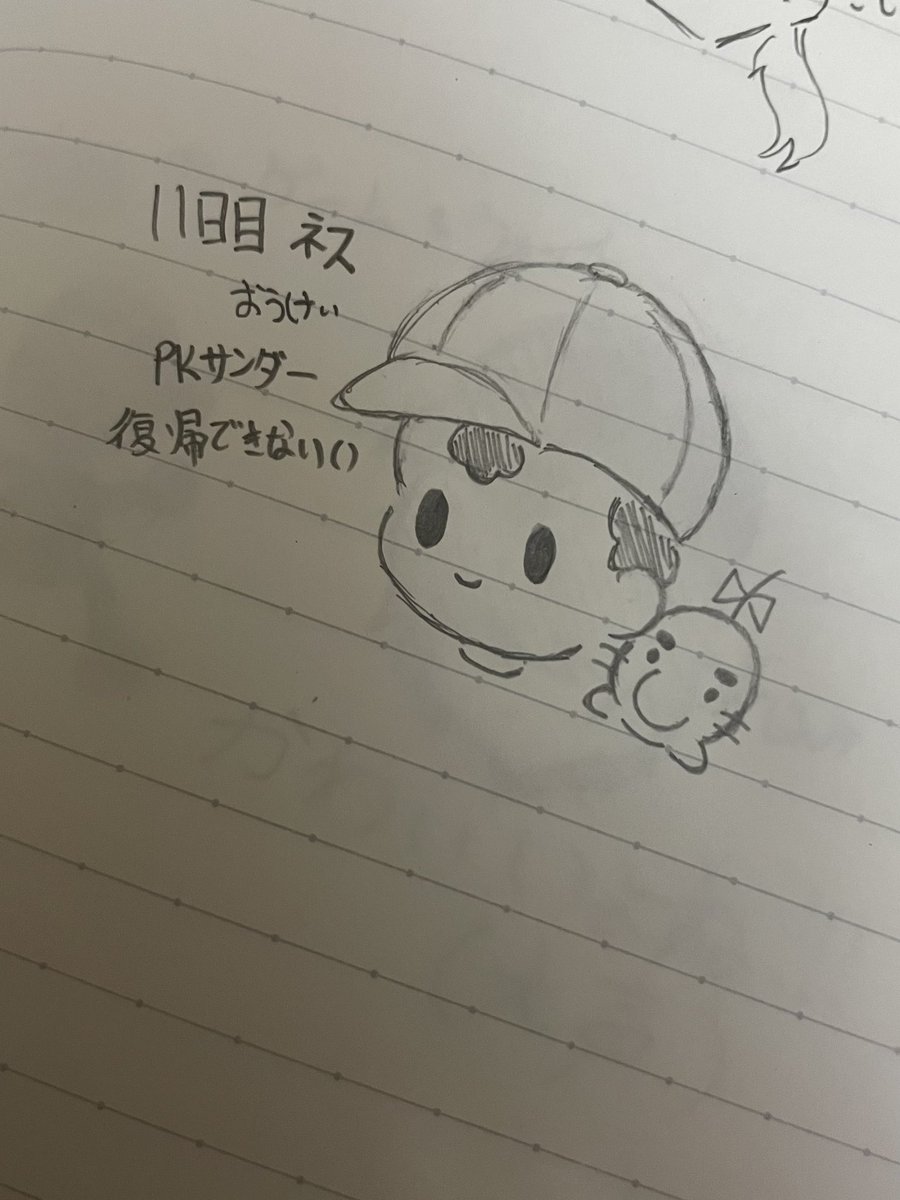 11日目 ネス
おうけい
PKサンダー
復帰できない()